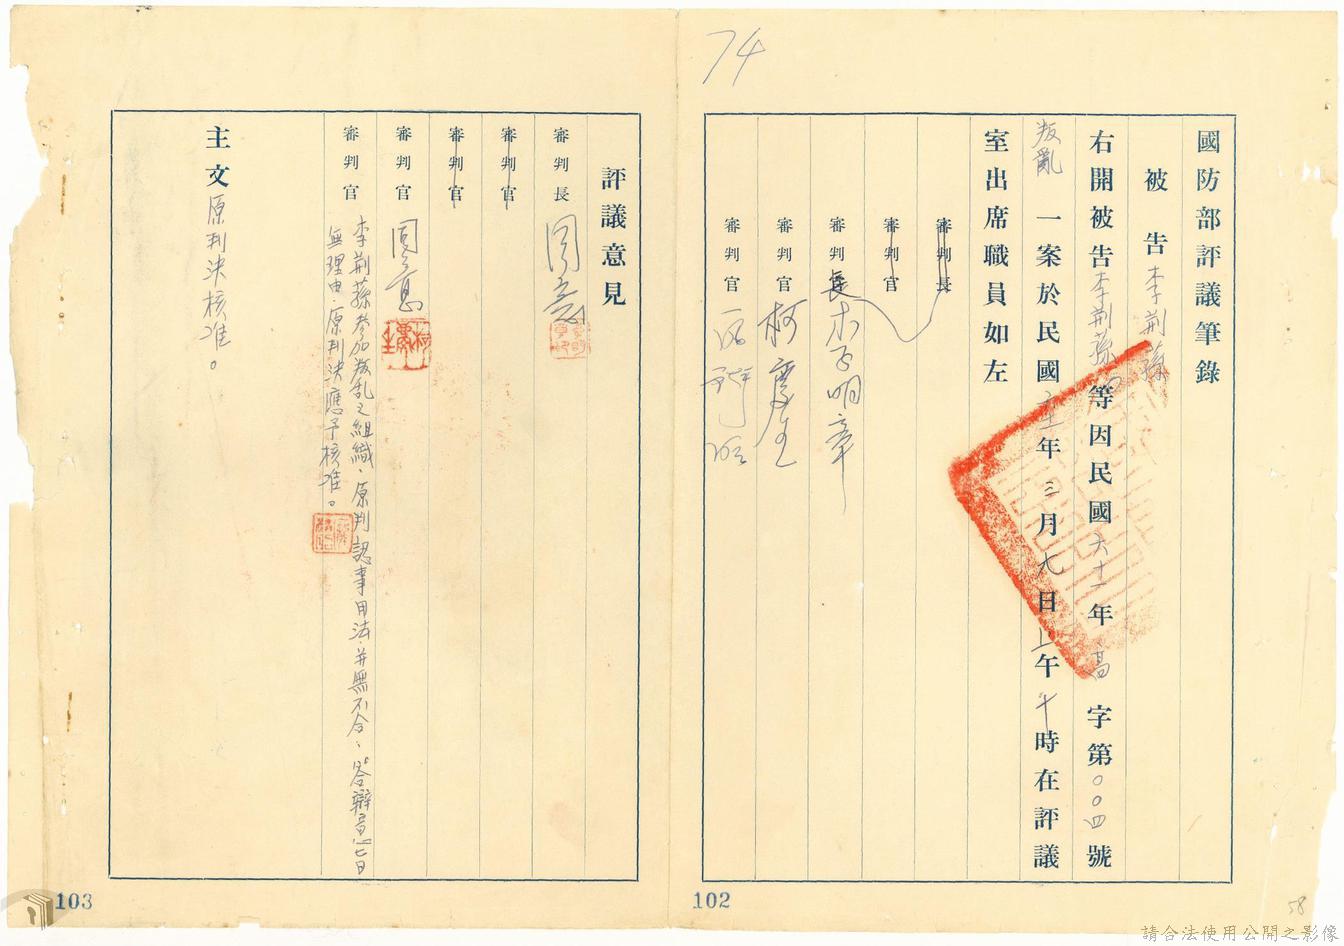 74
國防部評議筆錄
被告李荆蓀
右開被告李荆蓀等因民國六十一年高字第〇〇四號
叛亂一案於民國年三月九日上午十時在評議
室出席職員如左
審判長
審判官
審判長
審判官柯慶生
審判官
102
58
評議意見
審判長同意
審判官
審判官
審判官同意
審判官李荆蓀參加叛乱之組織,原判認事用法,並無不合、答辯意旨
無理由,原判決應予核准。
主文原判決核准。
103
請合法使用公開之影像